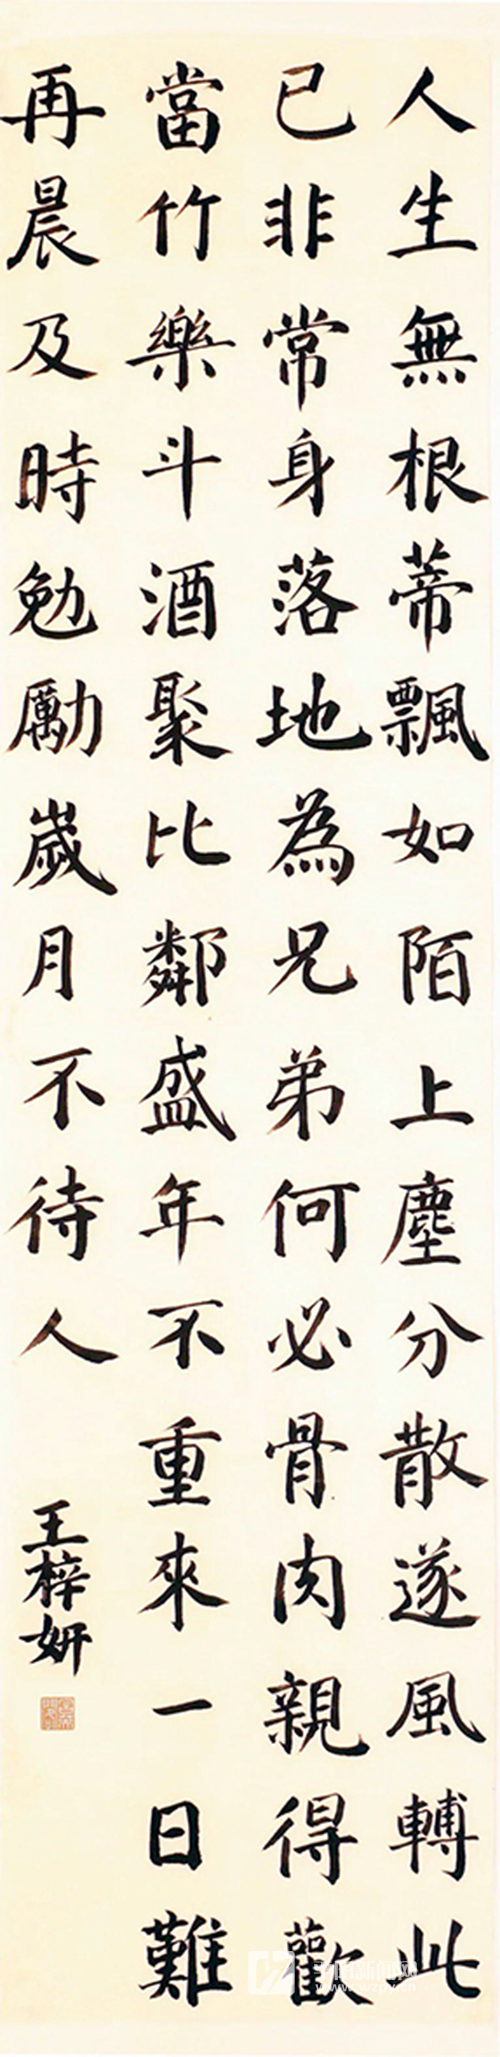 人生無根蒂飄如陌上塵分散遂風轉此
已非常身落地為兄弟何必骨肉親得歡
當竹樂斗酒聚比鄰盛年不重來一日難
再晨及時勉勵歲月不待人
王梓妍